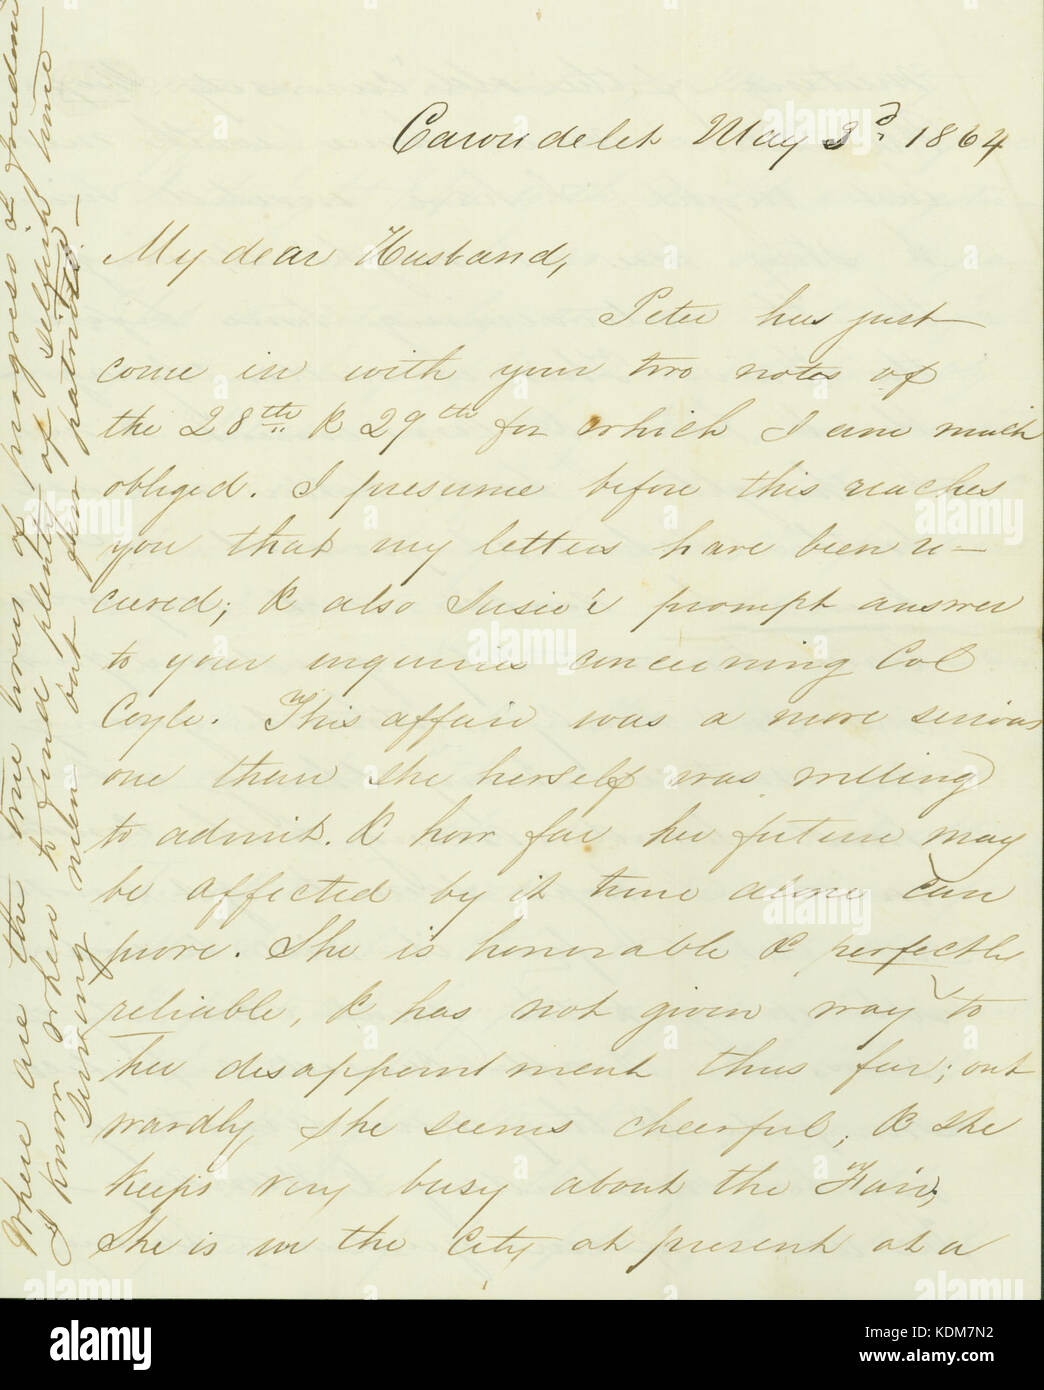 Carondelet May 3d. 1864
My dear Husband,
Peter has just
come in with your two notes of
the 28th & 29th for which I am much
obliged. I presume before this reaches
you that my letters have been re-
cieved; & also Susie's prompt answer
to your inquiries concerning Col
Coyle. This affair was a more serious
one than she herself was willing
to admit. & how far her future may
be affected by it time alone can
prove. She is honorable & perfectly
reliable, & has not given way to
her disappointment thus far; out
wardly she seems cheerful, & she
keeps very busy about the Fair,
She is in the City at present at a
Where are the true lovers of progress & freedom
I know when to find plenty of selfish time
serving men but few patriots -
alamy
Image ID: KDM7N2
www.alamy.com